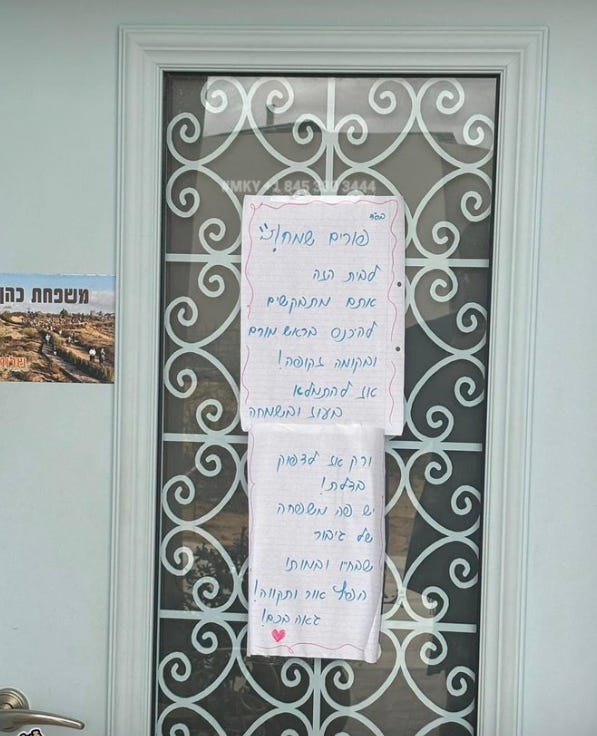 בס״ד
פורים שמח!
לבית הזה
אתם מתבקשים
להיכנס בראש מורם
ובקומה זקופה!
אז להתמלא
בעוז ובשמחה
ורק אז לדפוק
בדלת!
יש פה משפחה
של גיבור
שבחייו ובמותו
הפיץ אור ותקווה!
גאה בכם!
משפחת כהן